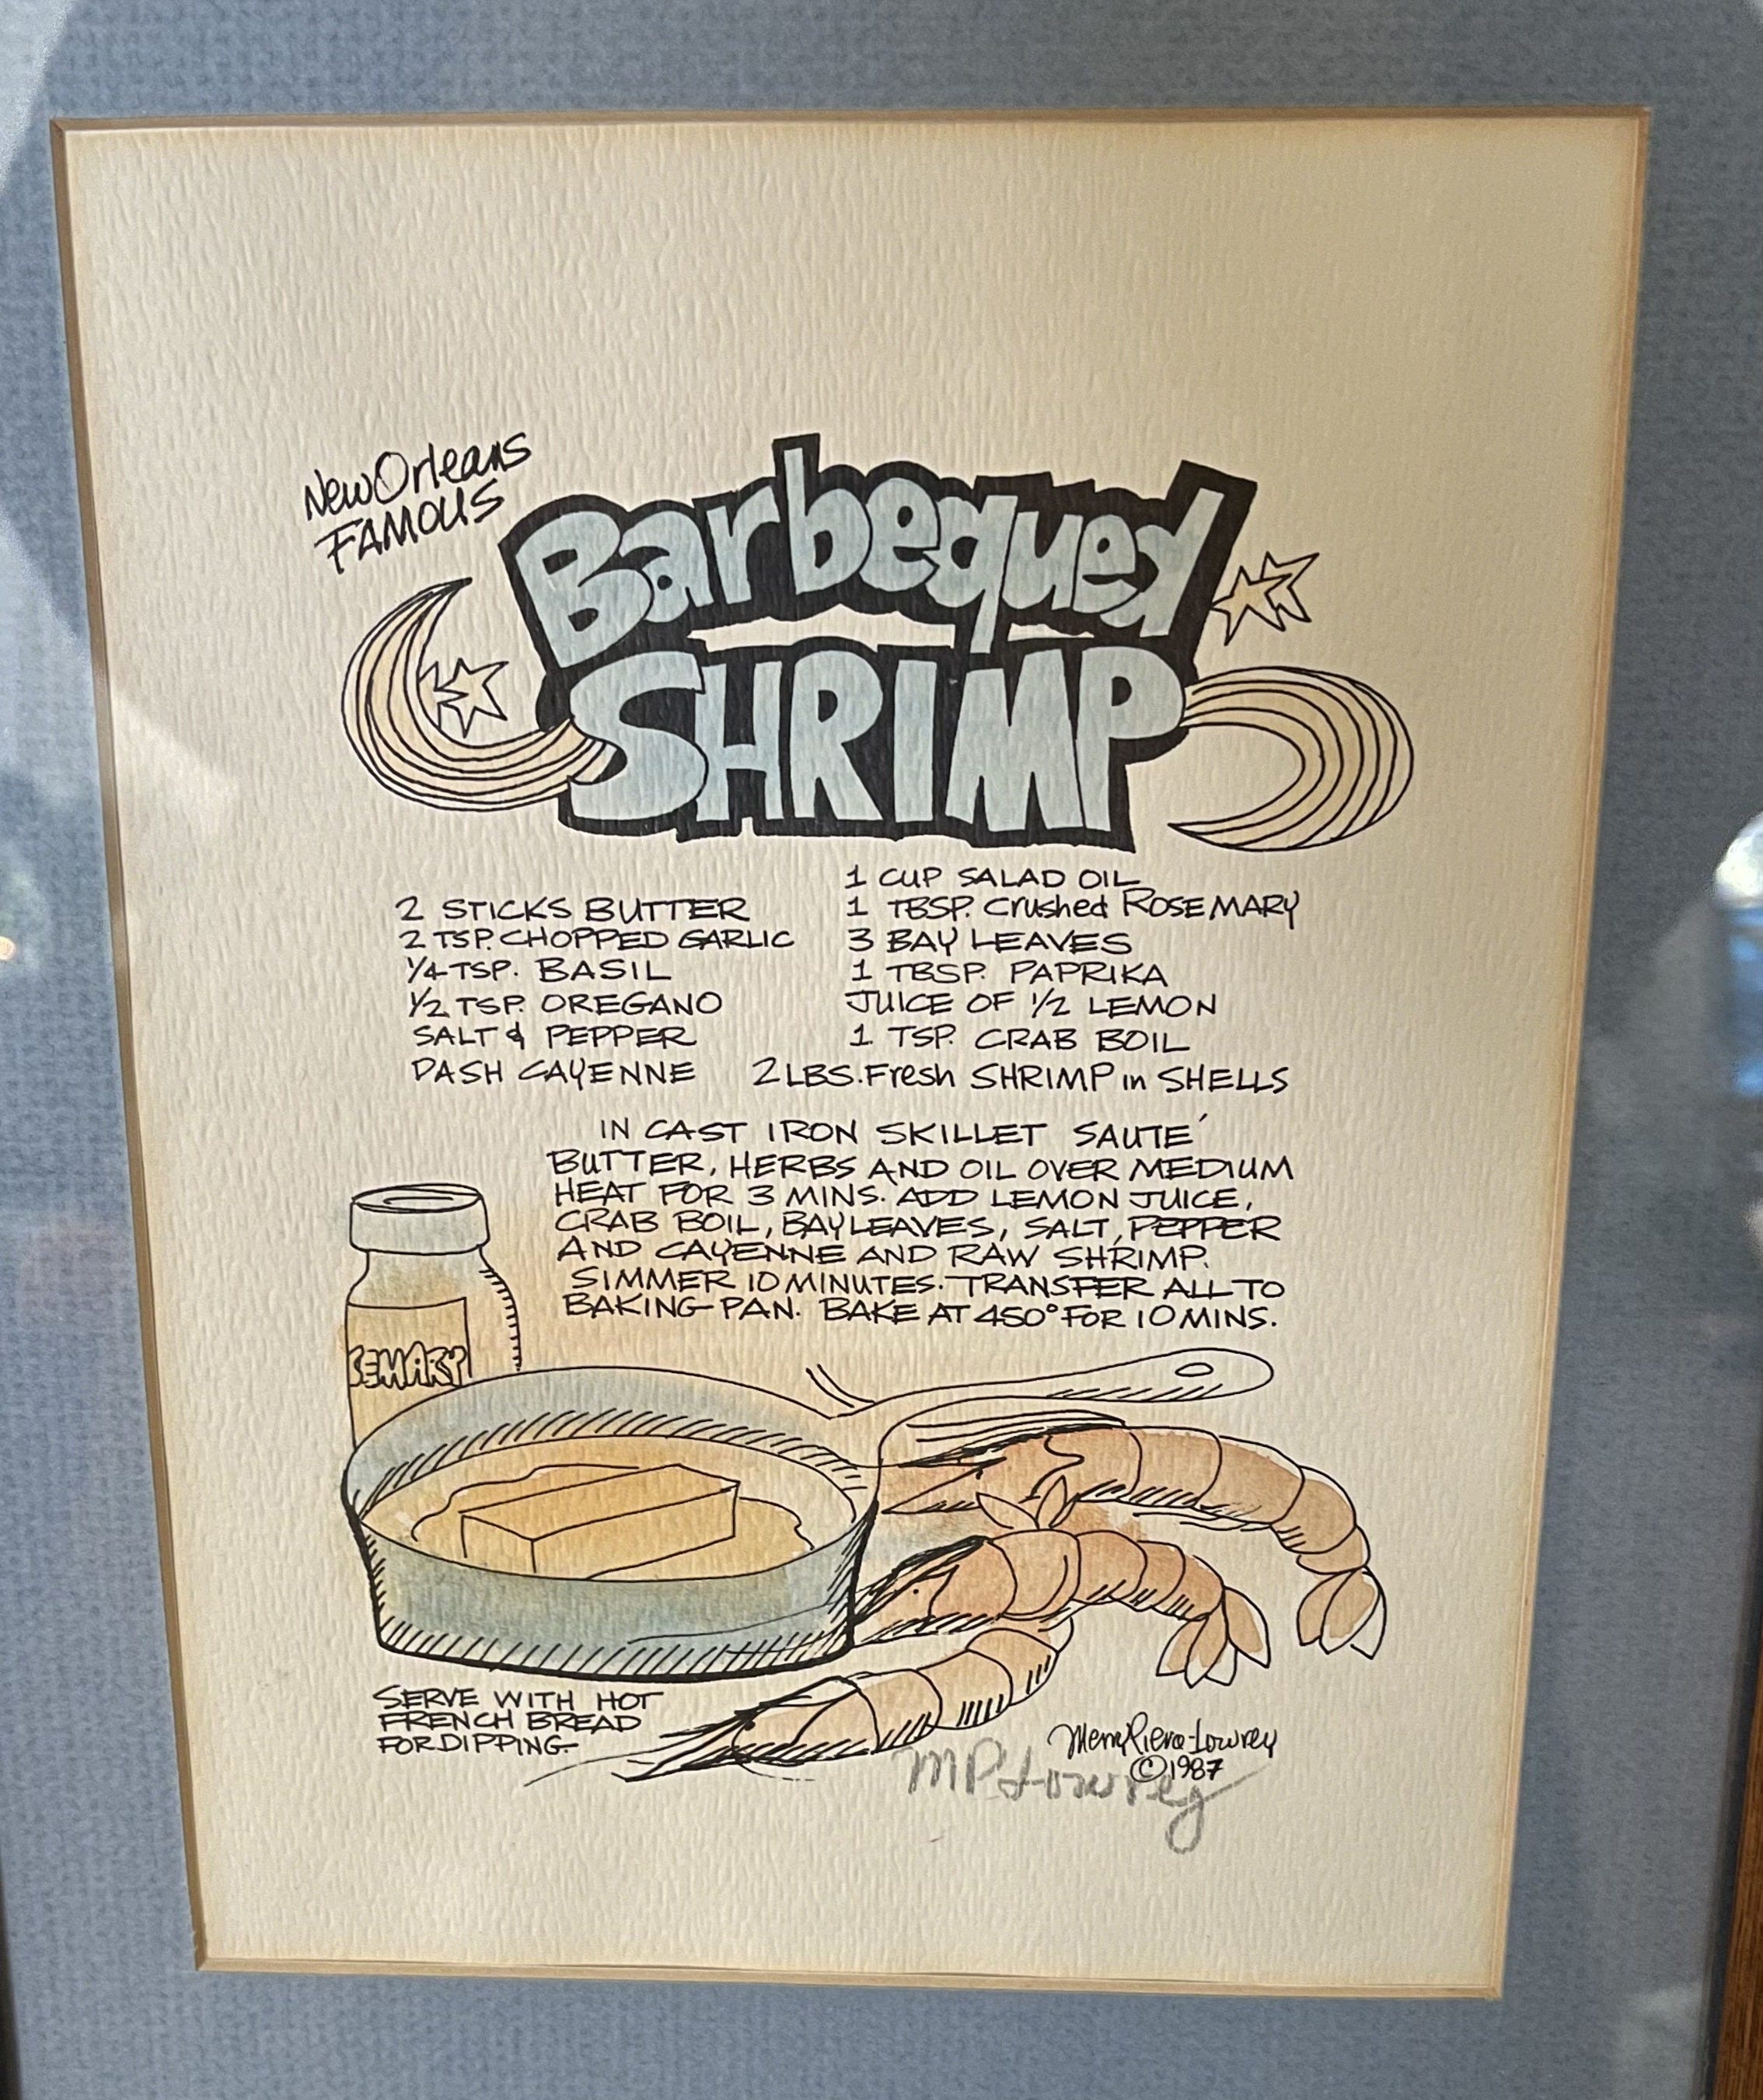 New Orleans
FAMOUS
Barbequed
SHRIMP
2 STICKS BUTTER
2 TSP. CHOPPED GARLIC
1/4 TSP. BASIL
1/2 TSP. OREGANO
SALT & PEPPER
DASH CAYENNE
1 CUP SALAD OIL
1 TBSP. Crushed ROSEMARY
3 BAY LEAVES
1 TBSP. PAPRIKA
JUICE OF 1/2 LEMON
1 TSP. CRAB BOIL
2 LBS. Fresh SHRIMP in SHELLS
IN CAST IRON SKILLET SAUTÉ
BUTTER, HERBS AND OIL OVER MEDIUM
HEAT FOR 3 MINS. ADD LEMON JUICE,
CRAB BOIL, BAY LEAVES, SALT, PEPPER
AND CAYENNE AND RAW SHRIMP.
SIMMER 10 MINUTES. TRANSFER ALL TO
BAKING PAN. BAKE AT 450° FOR 10 MINS.
SEMARY
SERVE WITH HOT
FRENCH BREAD
FOR DIPPING.
-Lowrey
© 1987
MP Lowrey